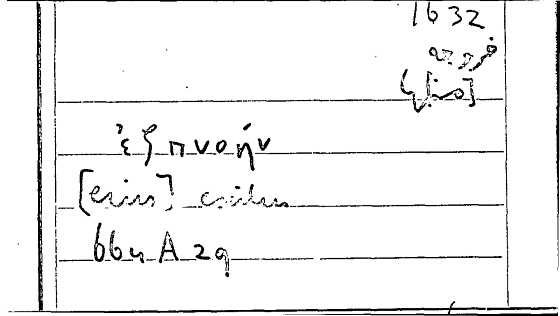 1632
خروجه
ἐκπνοήν
[eius] exitus
664 A 29